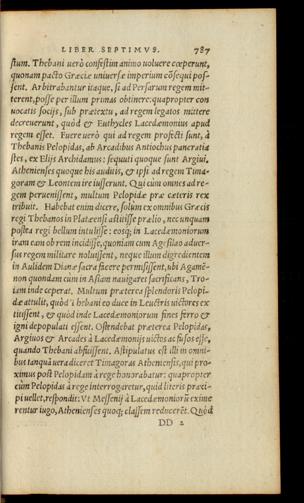 LIBER SEPTIMVS. 787
ſtum. Thebani uerò confeſtim animo uoluere cœperunt,
quonam pacto Græciæ uniuerſæ imperium cõſequi poſ-
ſent. Arbitrabantur itaque, ſi ad Perſarum regem mit-
terent, poſſe per illum primas obtinere: quapropter con
uocatis ſocijs, ſub prætextu, ad regem legatos mittere
decreuerunt, quòd & Euthycles Lacedæmonius apud
regem eſſet. Fuere uerò qui ad regem profecti ſunt, à
Thebanis Pelopidas, ab Arcadibus Antiochus pancratia
ſtes, ex Elijs Archidamus: ſequuti quoque ſunt Argiui.
Athenienſes quoque his auditis, & ipſi ad regem Tima-
goram & Leontem ire iuſſerunt. Qui cùm omnes ad re-
gem peruenissent, multum Pelopidæ præ cæteris rex
tribuit. Habebat enim dicere, ſolum ex omnibus Græcis
regi Thebanos in Platæenſi aſtitiſſe prælio, nec unquam
poſtea regi bellum intuliſſe: eosq; in Lacedæmoniorum
iram eam ob rem incidiſſe, quoniam cum Ageſilao aduer-
ſus regem militare noluiſſent, neque illum digredientem
in Aulidem Dianæ ſacra facere permiſiſſent, ubi Agamē-
non quondam cùm in Aſiam nauigaret ſacrificans, Tro-
iam inde ceperat. Multum præterea ſplendoris Pelopi-
dæ attulit, quòd Thebani eo duce in Leuctris uictores ex
titiſſent, & quòd inde Lacedæmoniorum fines ferro &
igni depopulati eſſent. Oſtendebat præterea Pelopidas,
Argiuos & Arcades à Lacedæmonijs uictos ac fuſos eſſe,
quando Thebani abfuiſſent. Aſtipulatus eſt illi in omni-
bus tanquã uera diceret Timagoras Athenienſis, qui pro-
ximus poſt Pelopidam à rege honorabatur: quapropter
cùm Pelopidas à rege interrogaretur, quid literis præci-
pi uellet, reſpondit: Vt Meſſenij à Lacedæmoniorũ exime
rentur iugo, Athenienſes quoq; claſſem reducerēt. Quòd
DD 2